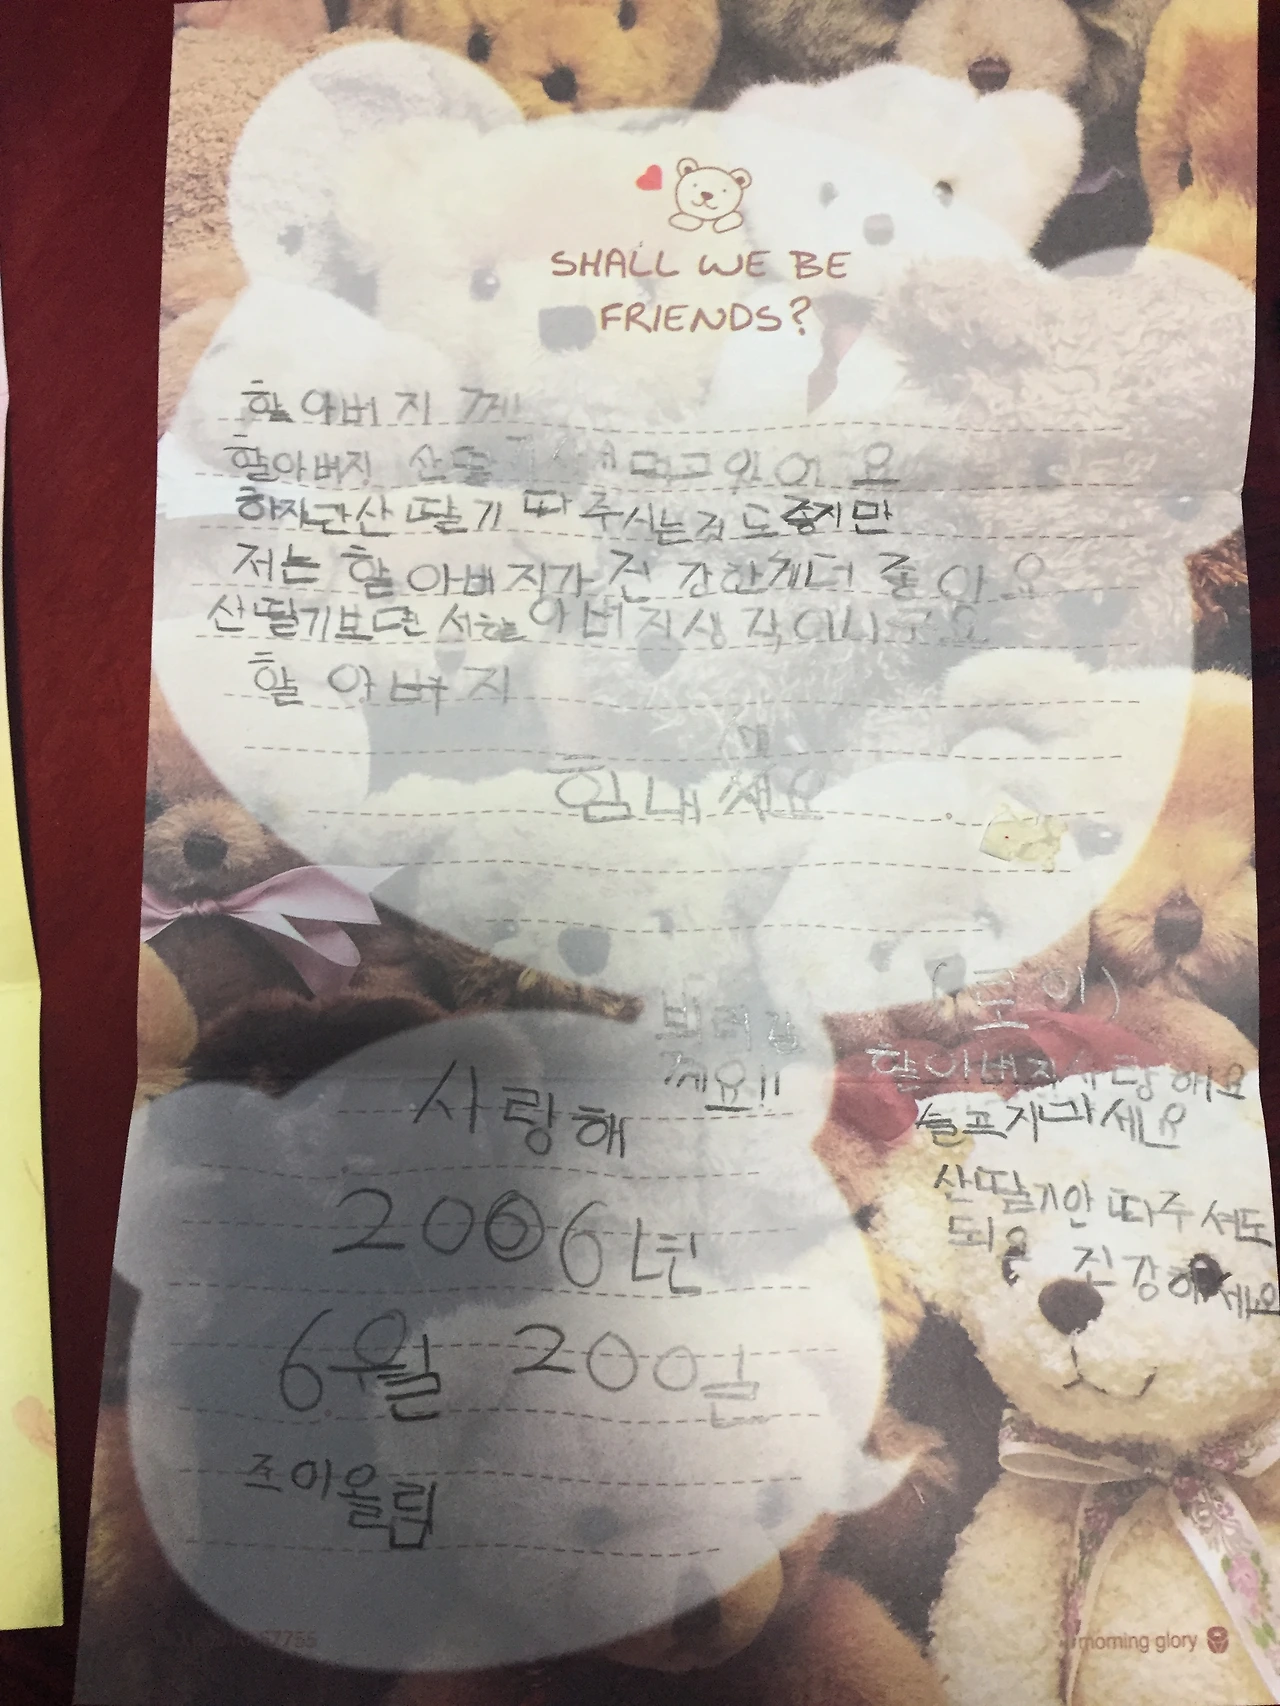 SHALL WE BE
FRIENDS?
할아버지 께
할아버지 산딸기 먹고있어요
하지만 산딸기 따주시는것도 좋지만
저는 할아버지가 건강한게더 좋아요
산딸기보면서할아버지생각이나구요
할아버지
힘내세요
(로이)
할아버지사랑해요
슬프지마세요
산딸기안따주셔도
되요 건강하세요
뵈러갈
께요!!
사랑해
2006년
6월 20일
조이올림
morning glory